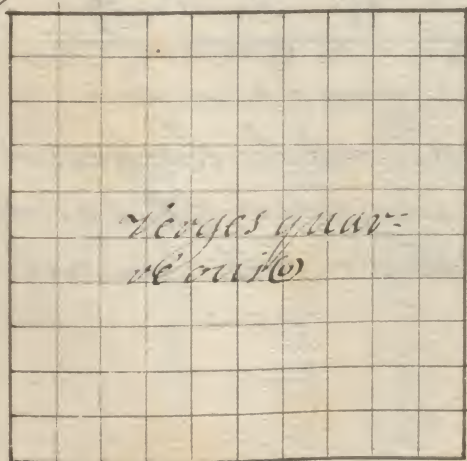 Verges quar=
ré ou